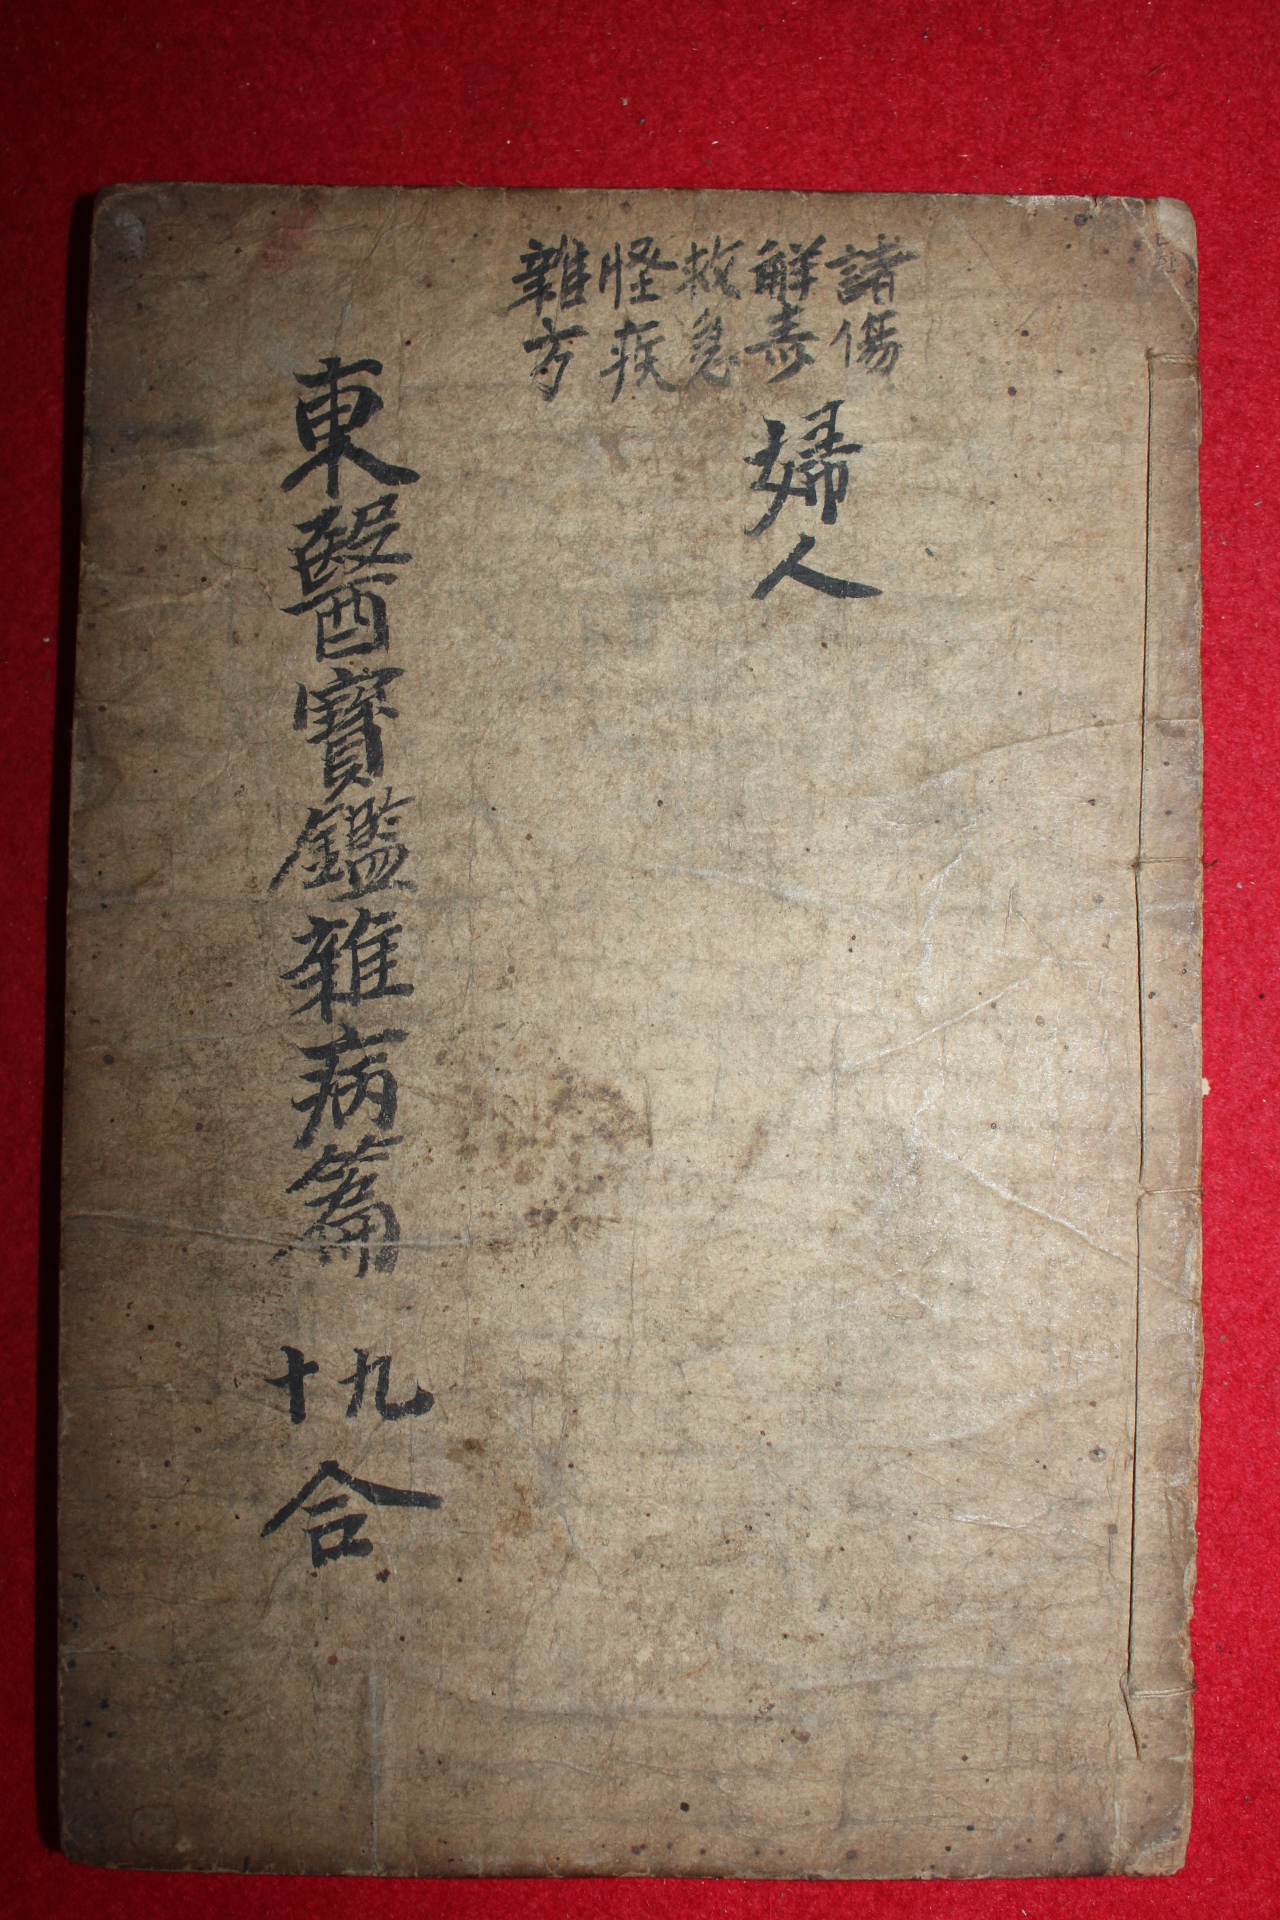 諸傷
解毒
救急
怪疾
雜方
婦人
東醫寶鑑雜病篇 九十 合